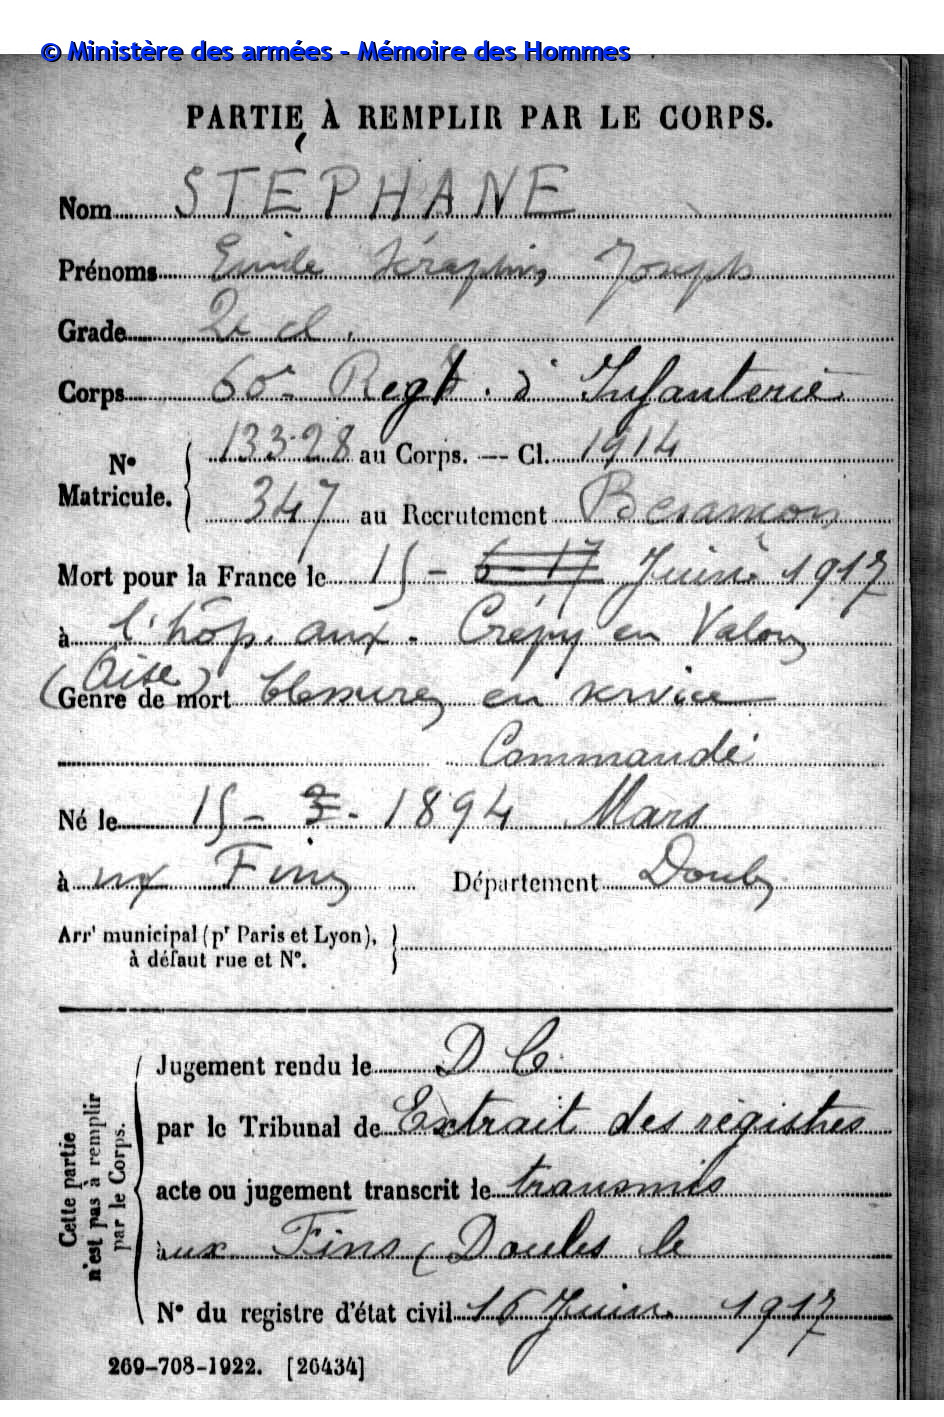 © Ministère des armées - Mémoire des Hommes
PARTIE À REMPLIR PAR LE CORPS.
Nom STÉPHANE
Prénoms Emile Séraphin Joseph
Grade 2e cl.
Corps 60e Regt. d'Infanterie
N° Matricule. { 13328 au Corps. — Cl. 1914
347 au Recrutement Besançon
Mort pour la France le 15 - 6 - 17 Juin 1917
à l'hôp. aux. Crépy en Valois
(Oise)
Genre de mort blessures en service
Commandé
Né le 15 - 3 - 1894 Mars
à aux Fins Département Doubs
Arrt municipal (pr Paris et Lyon), }
à défaut rue et N°.
Cette partie n'est pas à remplir par le Corps.
Jugement rendu le D C
par le Tribunal de Extrait des registres
acte ou jugement transcrit le transmis
à aux Fins (Doubs le
N° du registre d'état civil 16 Juin 1917
269-708-1922. [26434]